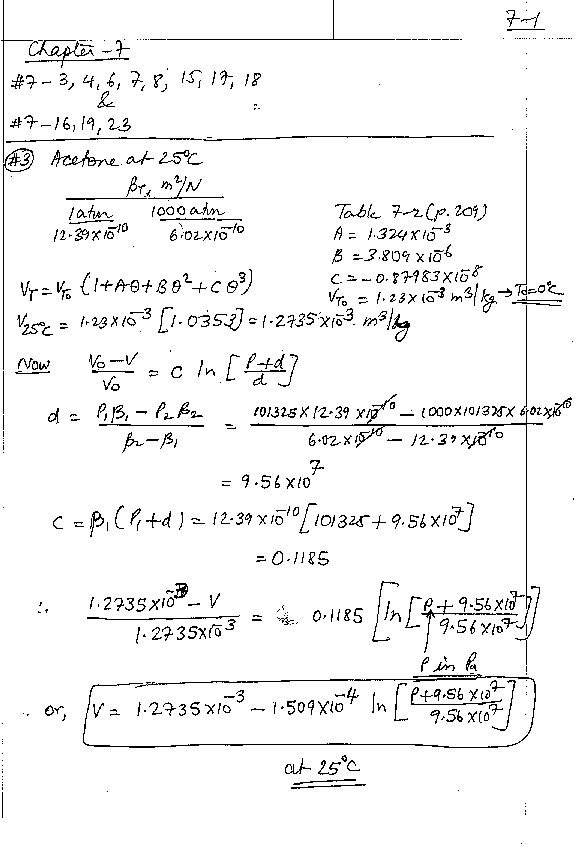 7-1
Chapter-7
#7-3, 4, 6, 7, 8, 15, 17, 18
&
#7-16, 19, 23
#3 Acetone at 25°C
βT, m²/N
1 atm 1000 atm
12.39×10⁻¹⁰ 6.02×10⁻¹⁰
Table 7-2 (p. 209)
A = 1.324×10⁻³
B = 3.809×10⁻⁶
C = -0.87983×10⁻⁸
V_T₀ = 1.23×10⁻³ m³/kg → T₀=0°C
V_T = V_T₀ (1+Aθ+Bθ²+Cθ³)
V_25°C = 1.23×10⁻³ [1.0353] = 1.2735×10⁻³ m³/kg
Now (V₀-V)/V₀ = C ln [(P+d)/d]
d = (P₁β₁ - P₂β₂)/(β₂-β₁) = (101325×12.39×10⁻¹⁰ - 1000×101325×6.02×10⁻¹⁰)/(6.02×10⁻¹⁰ - 12.39×10⁻¹⁰)
= 9.56×10⁷
C = β₁(P₁+d) = 12.39×10⁻¹⁰ [101325 + 9.56×10⁷]
= 0.1185
∴ (1.2735×10⁻³ - V)/(1.2735×10⁻³) = 0.1185 [ln [(P+9.56×10⁷)/(9.56×10⁷)]]
P in Pa
or, V = 1.2735×10⁻³ - 1.509×10⁻⁴ ln [(P+9.56×10⁷)/(9.56×10⁷)]
at 25°C